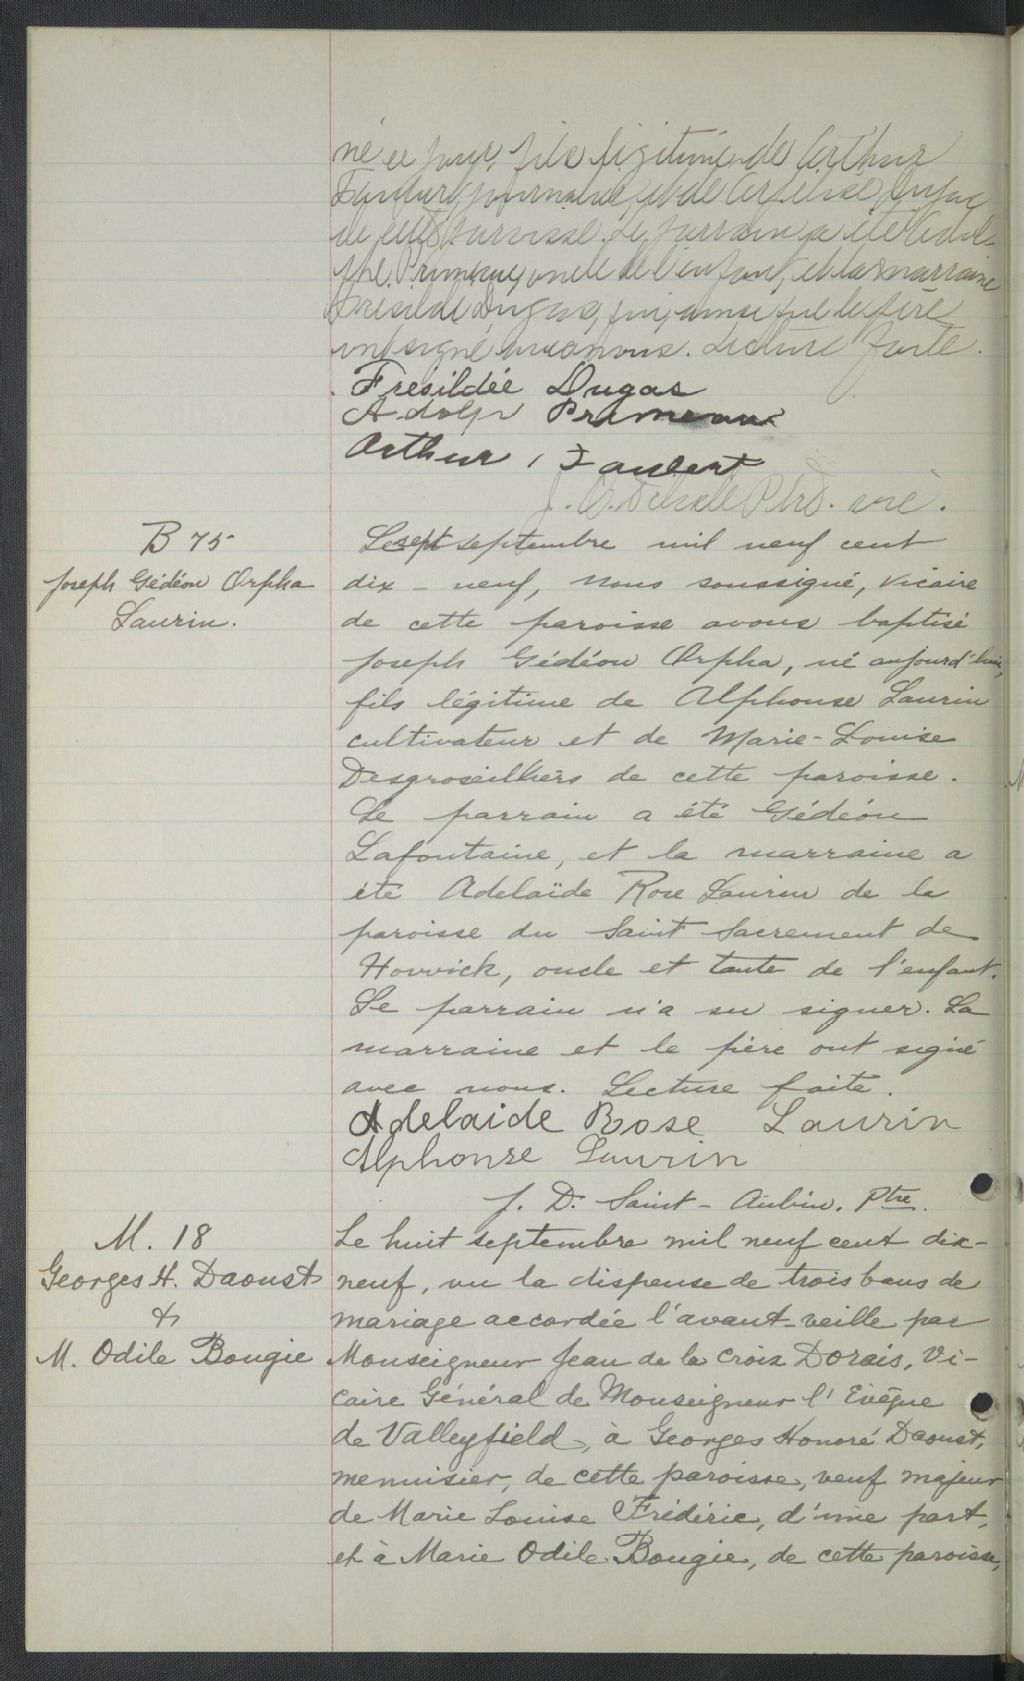 né ce jour, fils légitime de Arthur
journalier, et de
de cette paroisse. Le parrain a été Adol-
phe Primeau, oncle de l'enfant, et la marraine
Dugas, qui, ainsi que le père
ont signé avec nous. Lecture faite.
Fresildée Dugas
Adolph Primeau
Arthur Faubert
J. Ptre. vic.
B 75
Joseph Gédéon Orpha
Laurin.
Le sept septembre mil neuf cent
dix-neuf, nous soussigné, vicaire
de cette paroisse avons baptisé
Joseph Gédéon Orpha, né aujourd'hui,
fils légitime de Alphonse Laurin
cultivateur et de Marie-Louise
Desgroseilliers de cette paroisse.
Le parrain a été Gédéon
Lafontaine, et la marraine a
été Adelaïde Rose Laurin de la
paroisse du Saint Sacrement de
Howick, oncle et tante de l'enfant.
Le parrain n'a su signer. La
marraine et le père ont signé
avec nous. Lecture faite.
Adelaide Rose Laurin
Alphonse Laurin
J. D. Saint-Aubin. Ptre.
M. 18
Georges H. Daoust
&
M. Odile Bougie
Le huit septembre mil neuf cent dix-
neuf, vu la dispense de trois bans de
mariage accordée l'avant-veille par
Monseigneur Jean de la Croix Dorais, Vi-
caire Général de Monseigneur l'Evêque
de Valleyfield, à Georges Honoré Daoust,
menuisier, de cette paroisse, veuf majeur
de Marie Louise Frédéric, d'une part,
et à Marie Odile Bougie, de cette paroisse,